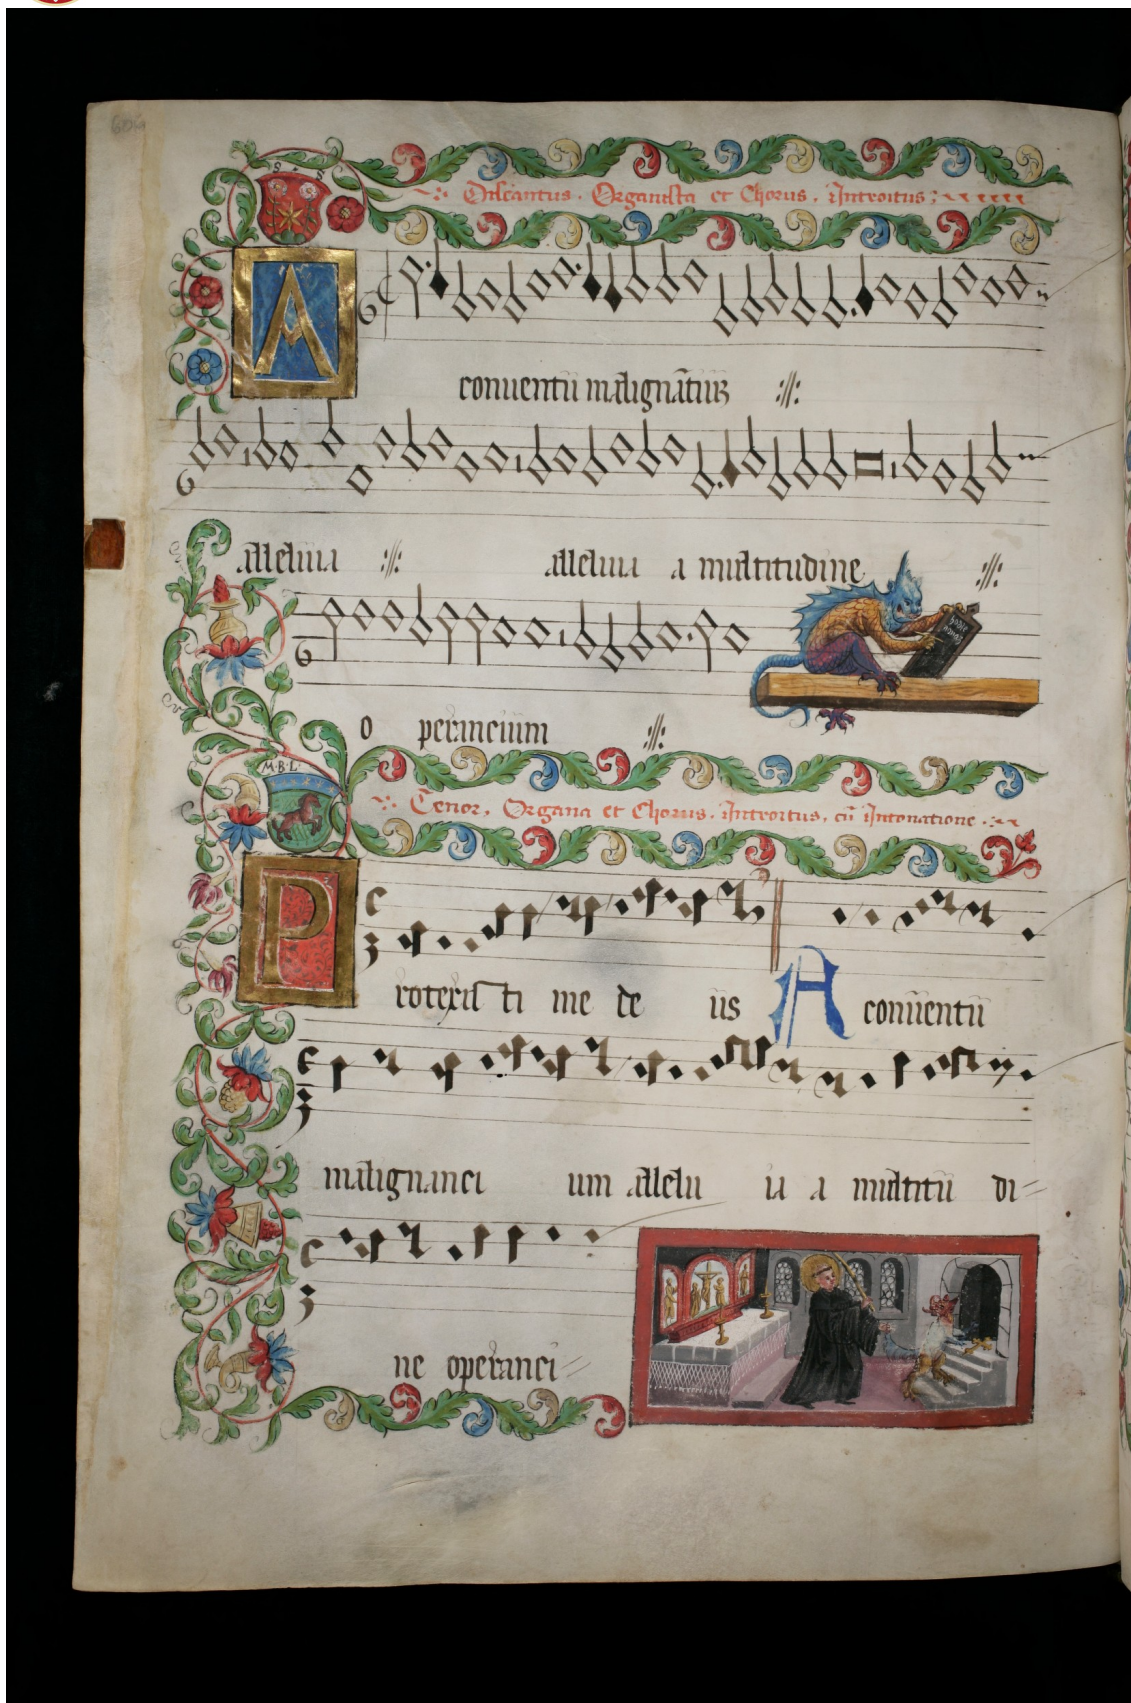 S · S
Discantus. Organista et Chorus. Introitus:
A
conuentū malignātiūꝫ :||:
alleluia :||: alleluia a multitudine :||:
o perancium :||:
M·B·L·
Tenor, Organa et Chorus. Introitus, cū Intonatione.
P
rotexisti me de us A conuentu
malignanci um allelu ia a multitu di=
ne operanci=